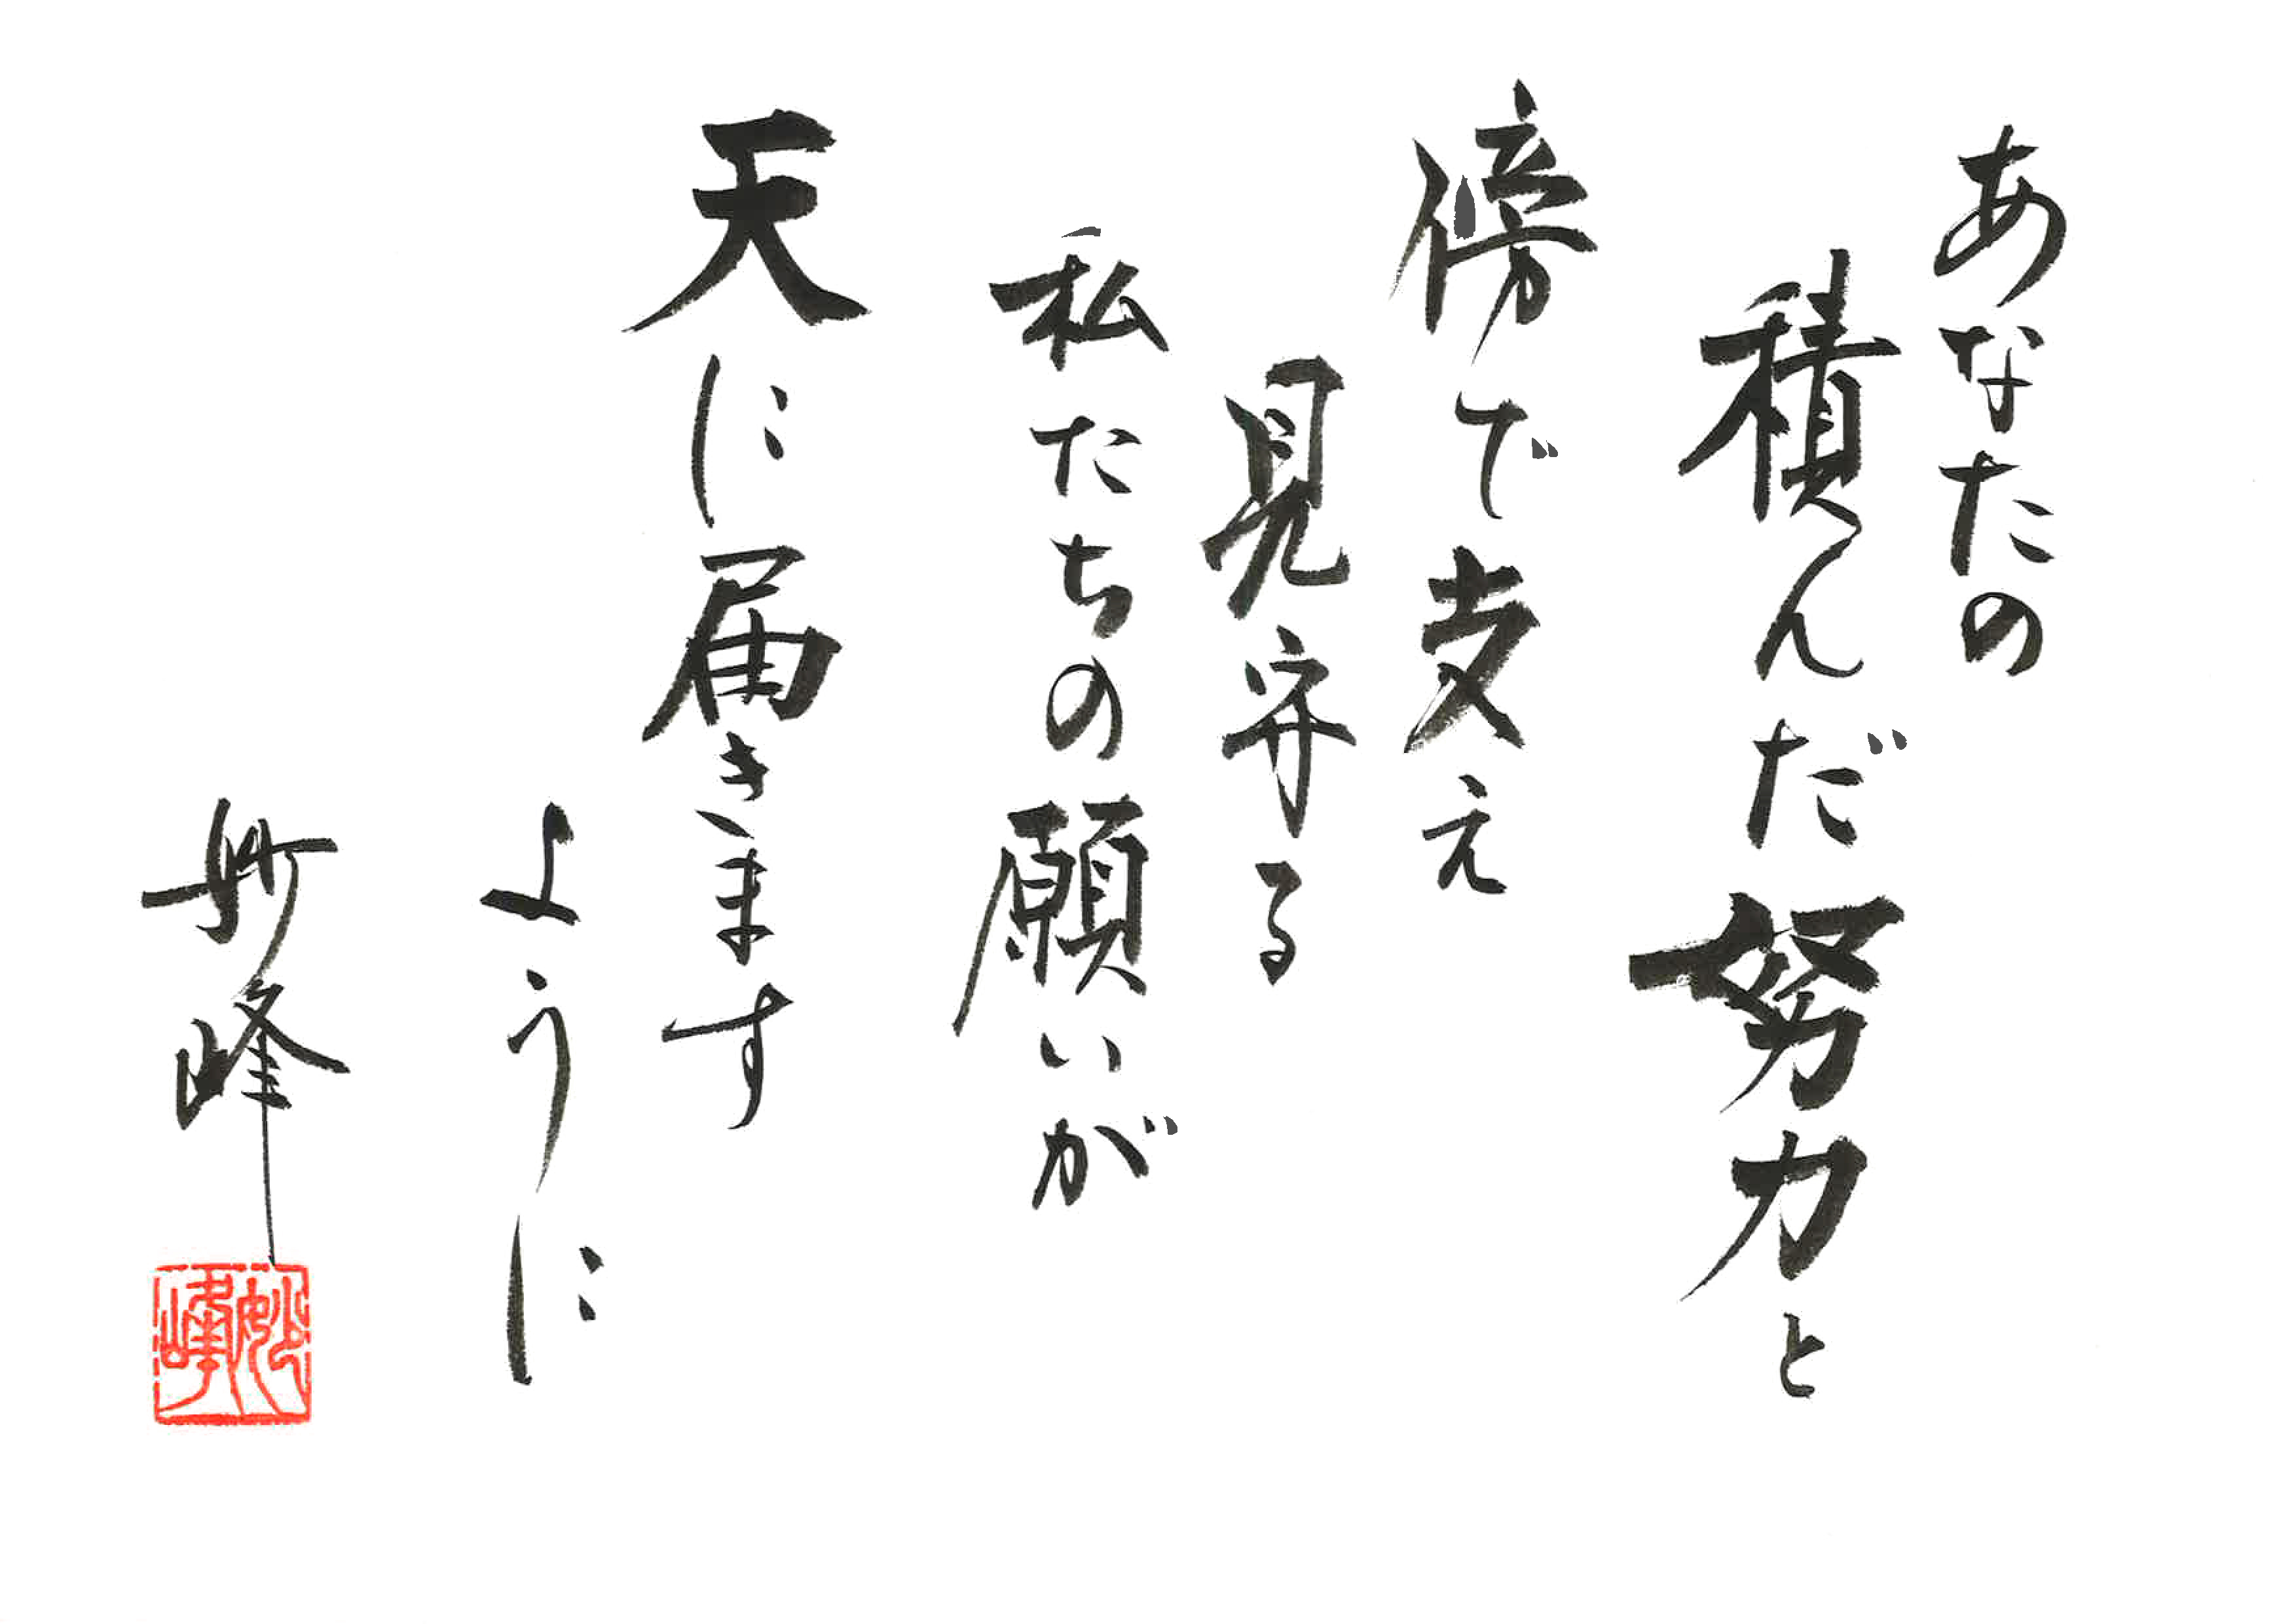 あなたの
積んだ努力と
傍で支え
見守る
私たちの願いが
天に届きます
ように
妙峰
妙峰